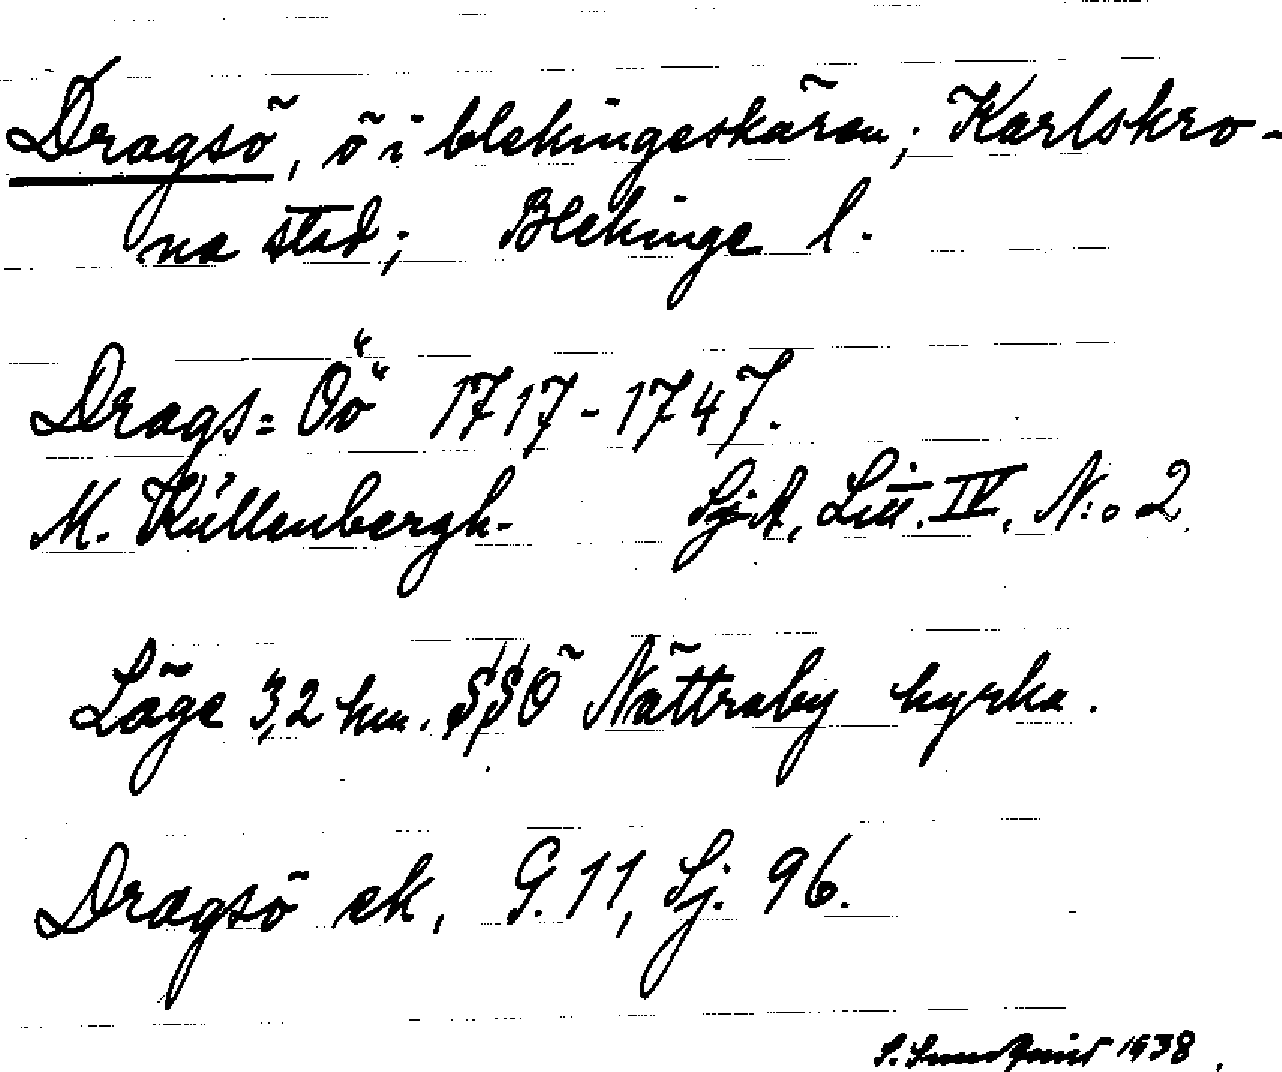 Dragsö, ö i blekingeskären; Karlskro-
na stad; Blekinge l.
Drags=Öö 1717-1747.
M. Küllenbergh. SjA, Litt. IV, N:o 2
Läge 3,2 km. SSÖ Nättraby kyrka.
Dragsö ek, G. 11, Sj. 96.
1938